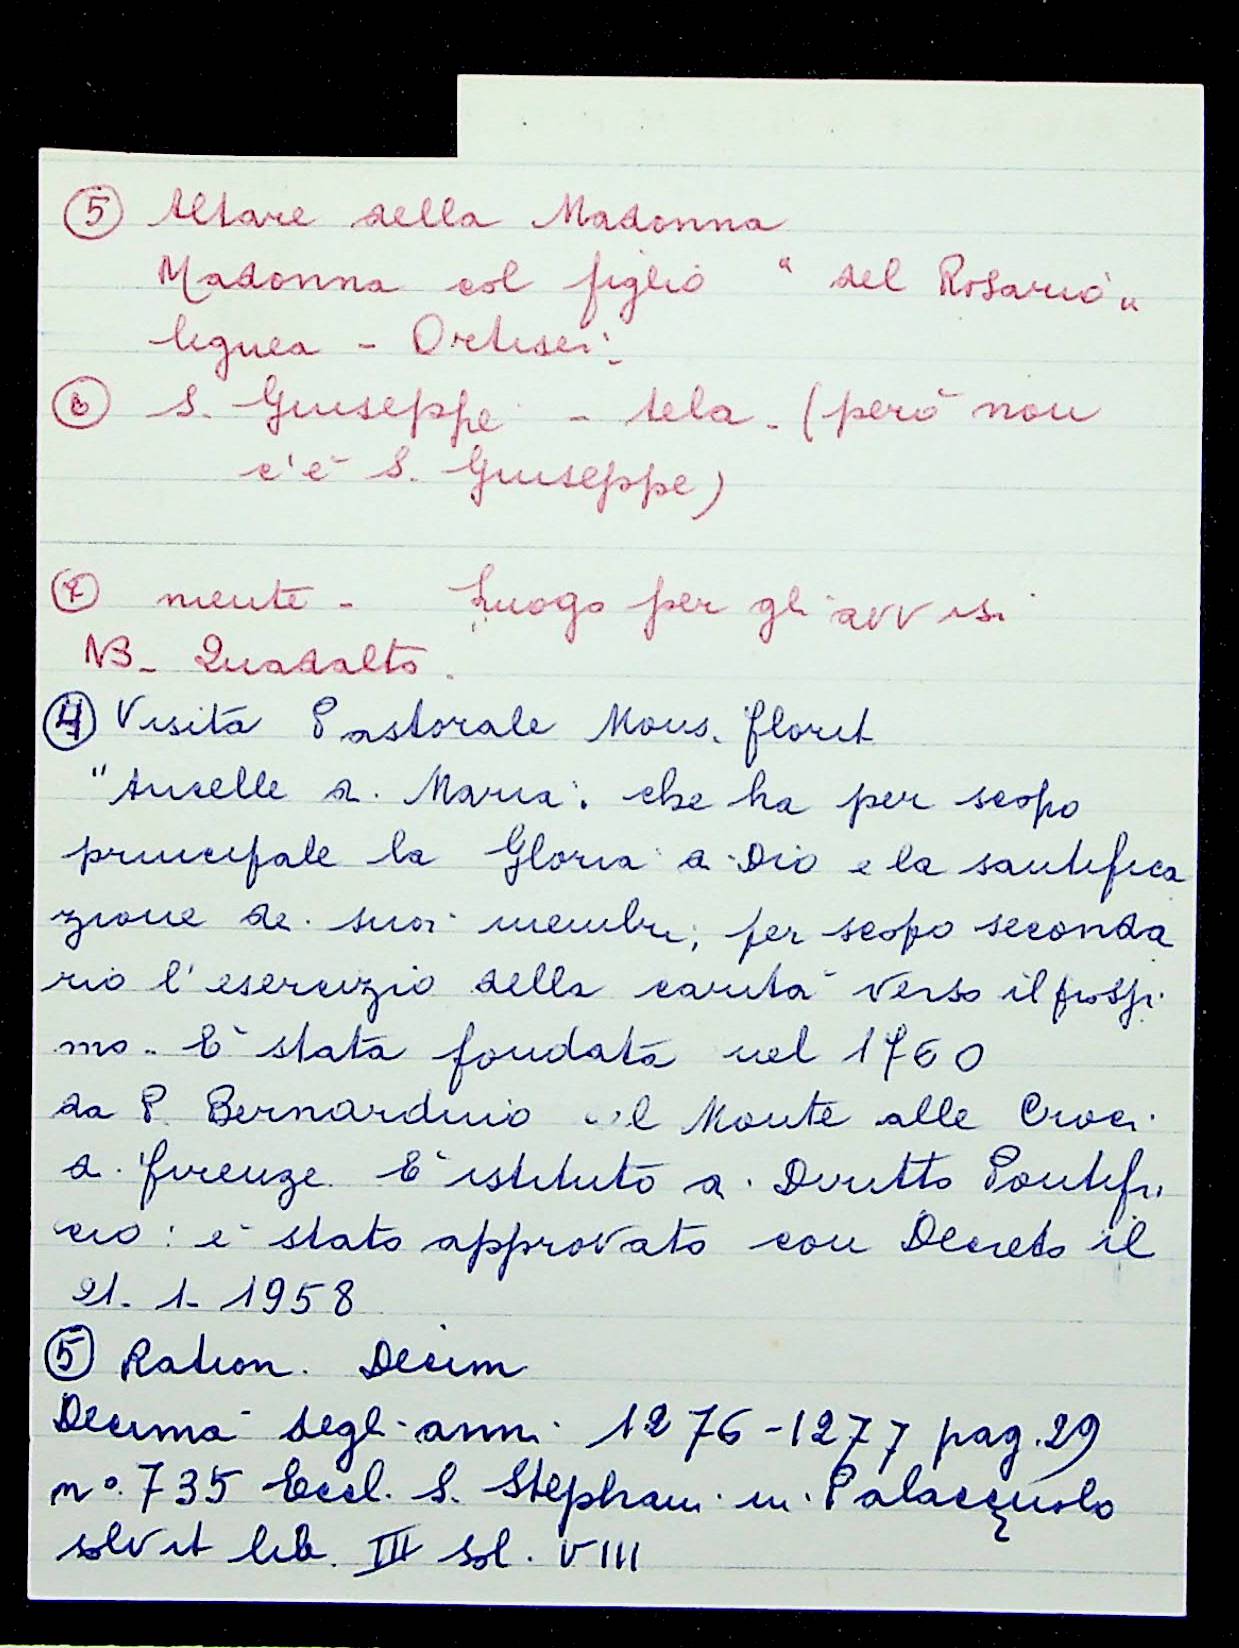 ⑤ Altare della Madonna
Madonna col figlio " del Rosario "
lignea - Ortisei -
⑥ S. Giuseppe - tela - (però non
c'è S. Giuseppe)
⑦ niente - Luogo per gli avvisi
NB - Quadalto.
④ Visita Pastorale Mons. Florit
"Ancelle di Maria: che ha per scopo
principale la Gloria a Dio e la santifica
zione dei suoi membri; per scopo seconda
rio l'esercizio della carità verso il prossi
mo. È stata fondata nel 1760
da P. Bernardino al Monte alle Croci
a Firenze. È istituto di Diritto Pontifi
cio: è stato approvato con Decreto il
21-1-1958
⑤ Ration. Decim
Decima degli anni 1276-1277 pag. 29
n°. 735 Eccl. S. Stephani in Palacçuolo
solvit lib. III sol. VIII